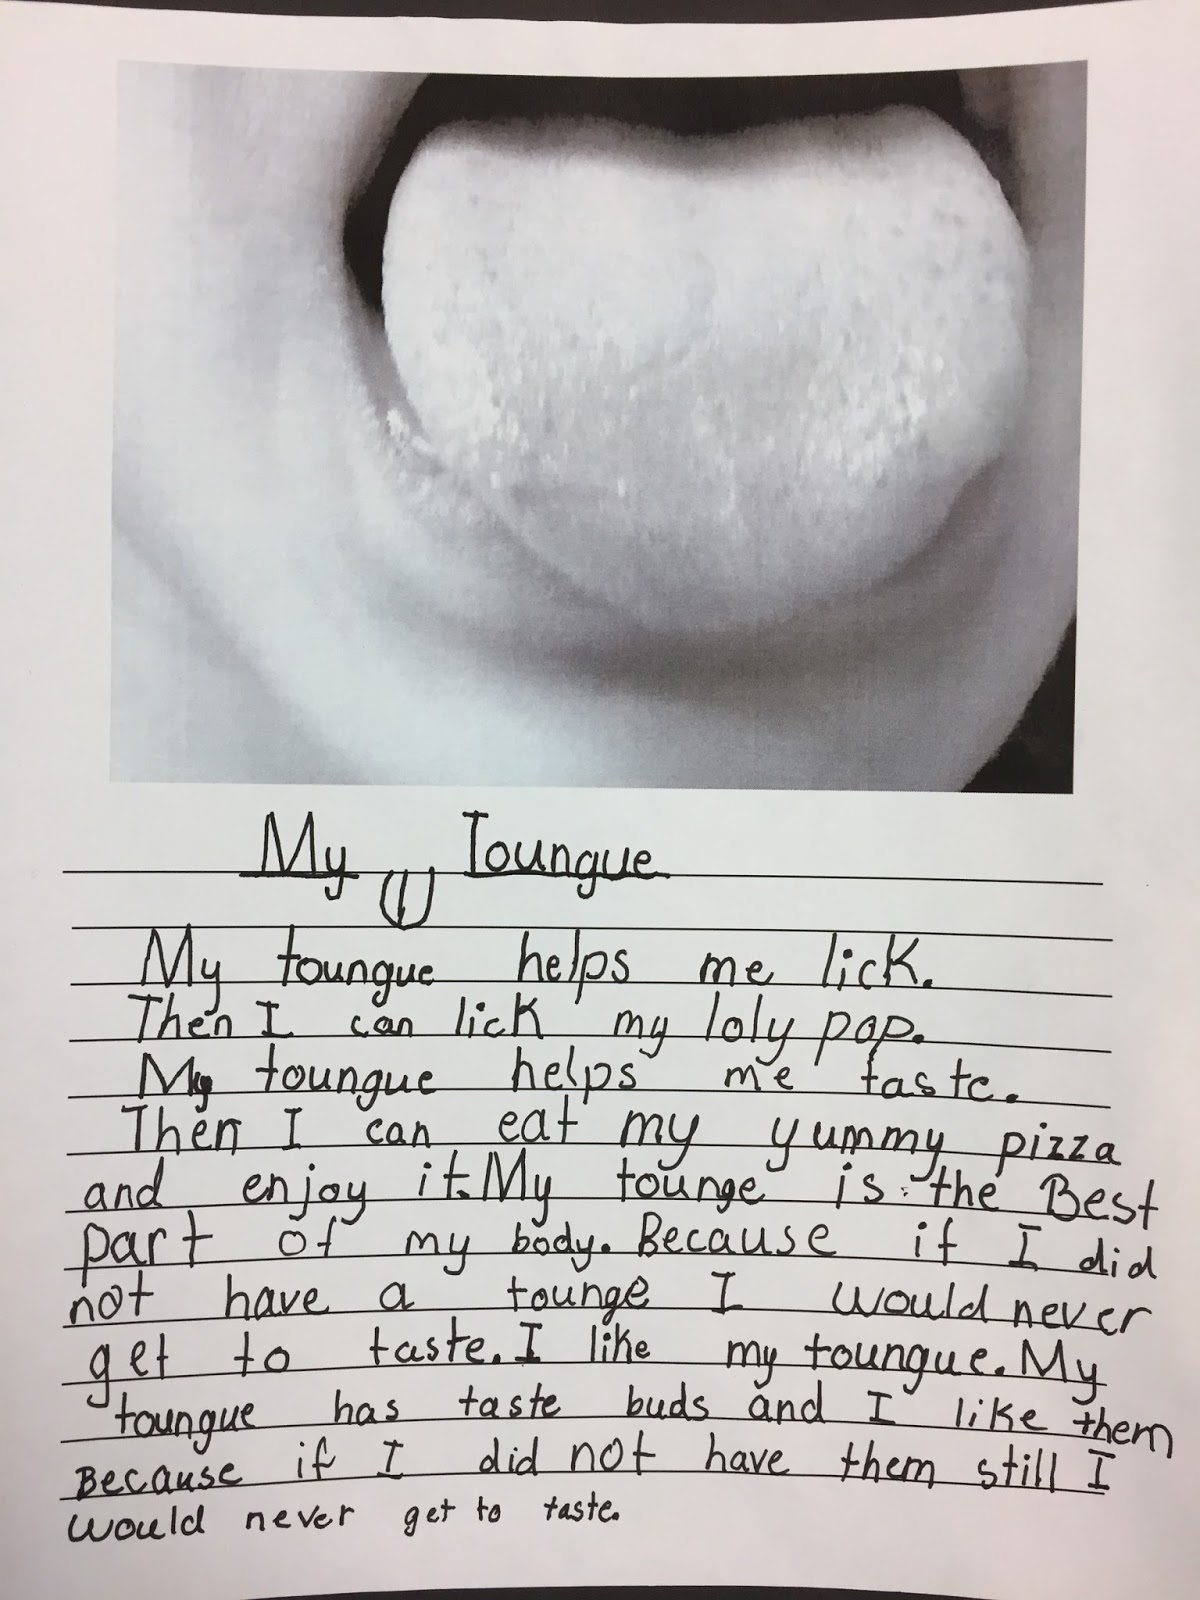 My Toungue
My toungue helps me lick.
Then I can lick my loly pop.
My toungue helps me taste.
Then I can eat my yummy pizza
and enjoy it. My tounge is the Best
part of my body. Because if I did
not have a tounge I would never
get to taste. I like my toungue. My
toungue has taste buds and I like them
Because if I did not have them still I
would never get to taste.